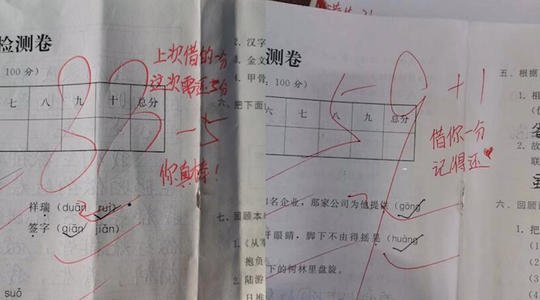 检测卷
100 分)
七 八 九 十 总分
上次借的一分
这次需还5分
-5
你真棒!
祥瑞 (duān ruì)
签字 (qiān jiān)
suǒ
2. 汉字
3. 金文
4. 甲骨
六、把下面
七、回顾本
1.《从军
抱负
2. 陆游
测卷
100 分)
六 七 八 九 十 总分
59 +1
借你一分
记得还♥
名企业，那家公司为他提供 (gōng
开眼睛，脚下不由得摇晃 (huàng
下的树林里盘旋。
五、根据
1. 根
2. 故
联
六、回顾
1. 把
2.
3.